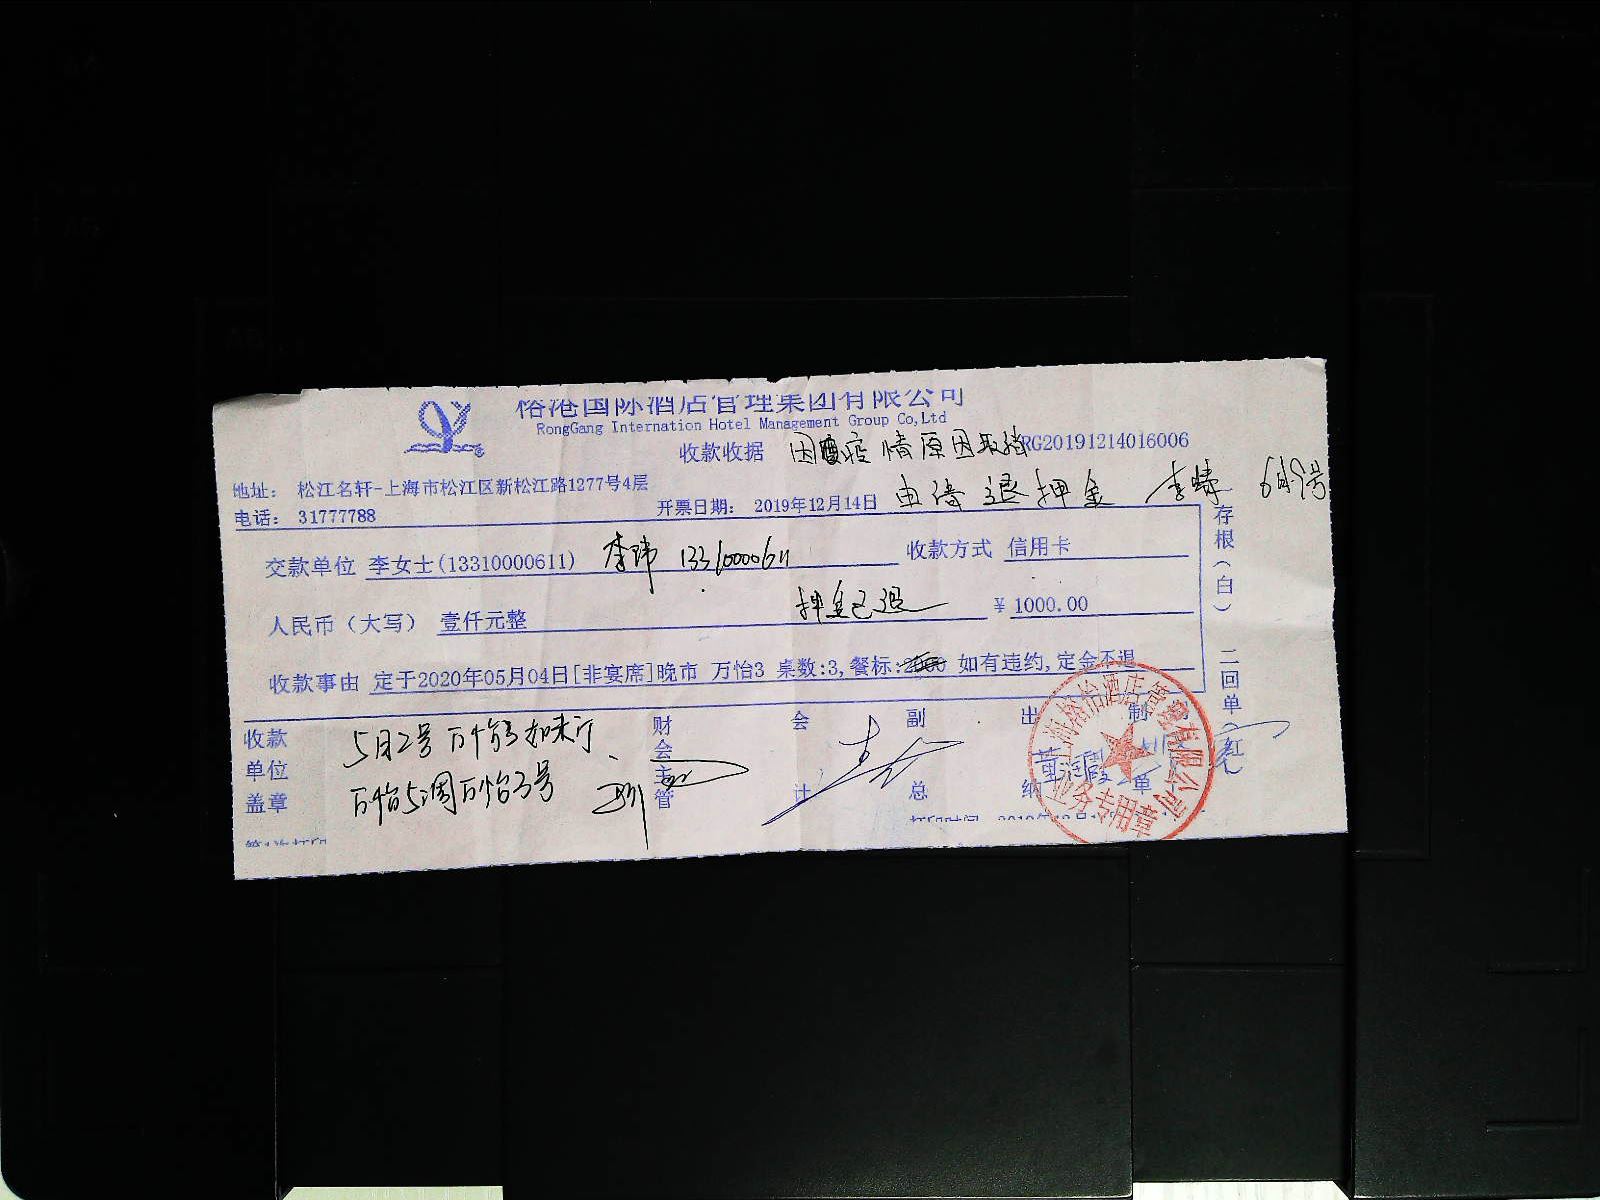 榕港国际酒店管理集团有限公司
RongGang Internation Hotel Management Group Co,Ltd
收款收据 因疫情原因取消 RG20191214016006
地址： 松江名轩-上海市松江区新松江路1277号4层
电话： 31777788 开票日期： 2019年12月14日 申请退押金
交款单位 李女士(13310000611) 李玮 13310000611 收款方式 信用卡
人民币（大写） 壹仟元整 押金已退 ¥ 1000.00
收款事由 定于2020年05月04日[非宴席]晚市 万怡3 桌数:3,餐标: 如有违约,定金不退
存根（白） 二回单（红）
收款单位盖章 财会主管 会计 副总 出纳 制单
5月2号 万怡
万怡5调万怡3号
董润霞
上海榕怡酒店管理有限公司
业务专用章